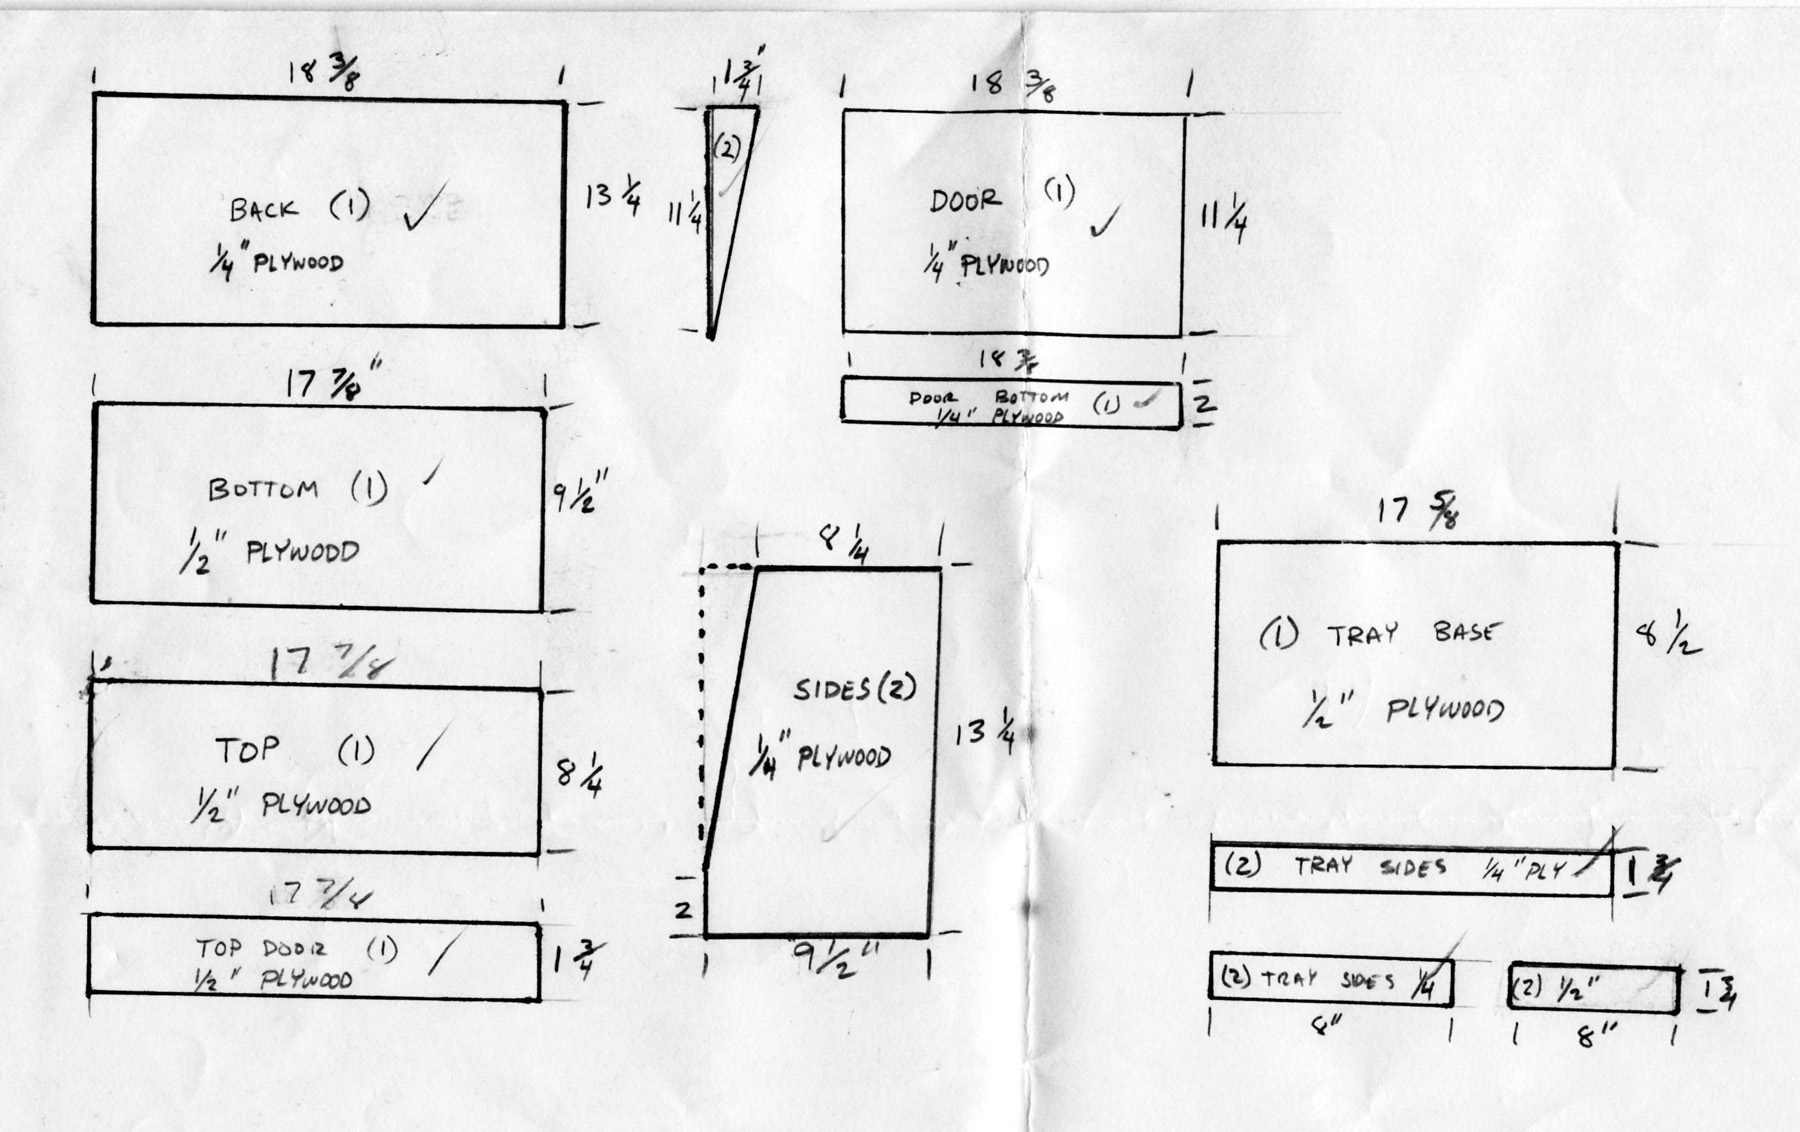 18 3/8
BACK (1)
1/4" PLYWOOD
13 1/4
1 3/4"
(2)
11 1/4
18 3/8
DOOR (1)
1/4" PLYWOOD
11 1/4
18 3/8
DOOR BOTTOM (1)
1/4" PLYWOOD
2
17 7/8"
BOTTOM (1)
1/2" PLYWOOD
9 1/2"
17 7/8
TOP (1)
1/2" PLYWOOD
8 1/4
TOP DOOR (1)
1/2" PLYWOOD
1 3/4
8 1/4
SIDES (2)
1/4" PLYWOOD
13 1/4
2
9 1/2"
17 5/8
(1) TRAY BASE
1/2" PLYWOOD
8 1/2
(2) TRAY SIDES 1/4" PLY
1 3/4
(2) TRAY SIDES 1/4
8"
(2) 1/2"
8"
1 3/4